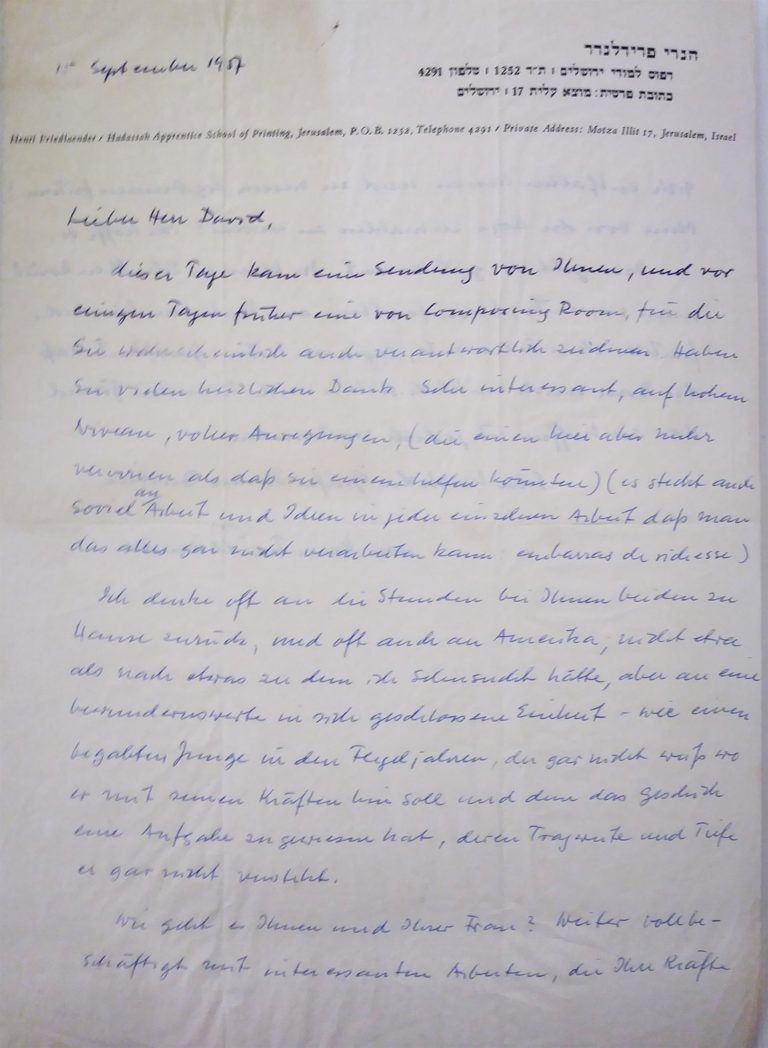 הנרי פרידלנדר
דפוס למודי ירושלים ׀ ת״ד 1252 ׀ טלפון 4291
כתובת פרטית: מוצא עלית 17 ׀ ירושלים
September 1957
Henri Friedlaender / Hadassah Apprentice School of Printing, Jerusalem, P.O.B. 1252, Telephone 4291 / Private Address: Motza Illit 17, Jerusalem, Israel
Lieber Herr David,
dieser Tage kam eine Sendung von Ihnen, und vor
einigen Tagen früher eine von Composing Room, für die
Sie wahrscheinlich auch verantwortlich zeichnen. Haben
Sie vielen herzlichen Dank. Sehr interessant, auf hohem
Niveau, voller Anregungen, (die einen hier aber mehr
verwirren als daß sie einem helfen könnten) (es steckt auch
soviel an Arbeit und Ideen in jeder einzelnen Arbeit daß man
das alles gar nicht verarbeiten kann: embarras de richesse)
Ich denke oft an die Stunden bei Ihnen beiden zu
Hause zurück, und oft auch an Amerika, nicht etwa
als nach etwas zu dem ich Sehnsucht hätte, aber an eine
bewundernswerte in sich geschlossene Einheit – wie einen
begabten Junge in den Flegeljahren, der gar nicht weiß wo
er mit seinen Kräften hin soll und dem das Geschick
eine Aufgabe zugewiesen hat, deren Tragweite und Tiefe
er gar nicht versteht.
Wie geht es Ihnen und Ihrer Frau? Weiter vollbe-
schäftigt mit interessanten Arbeiten, die Ihre Kräfte